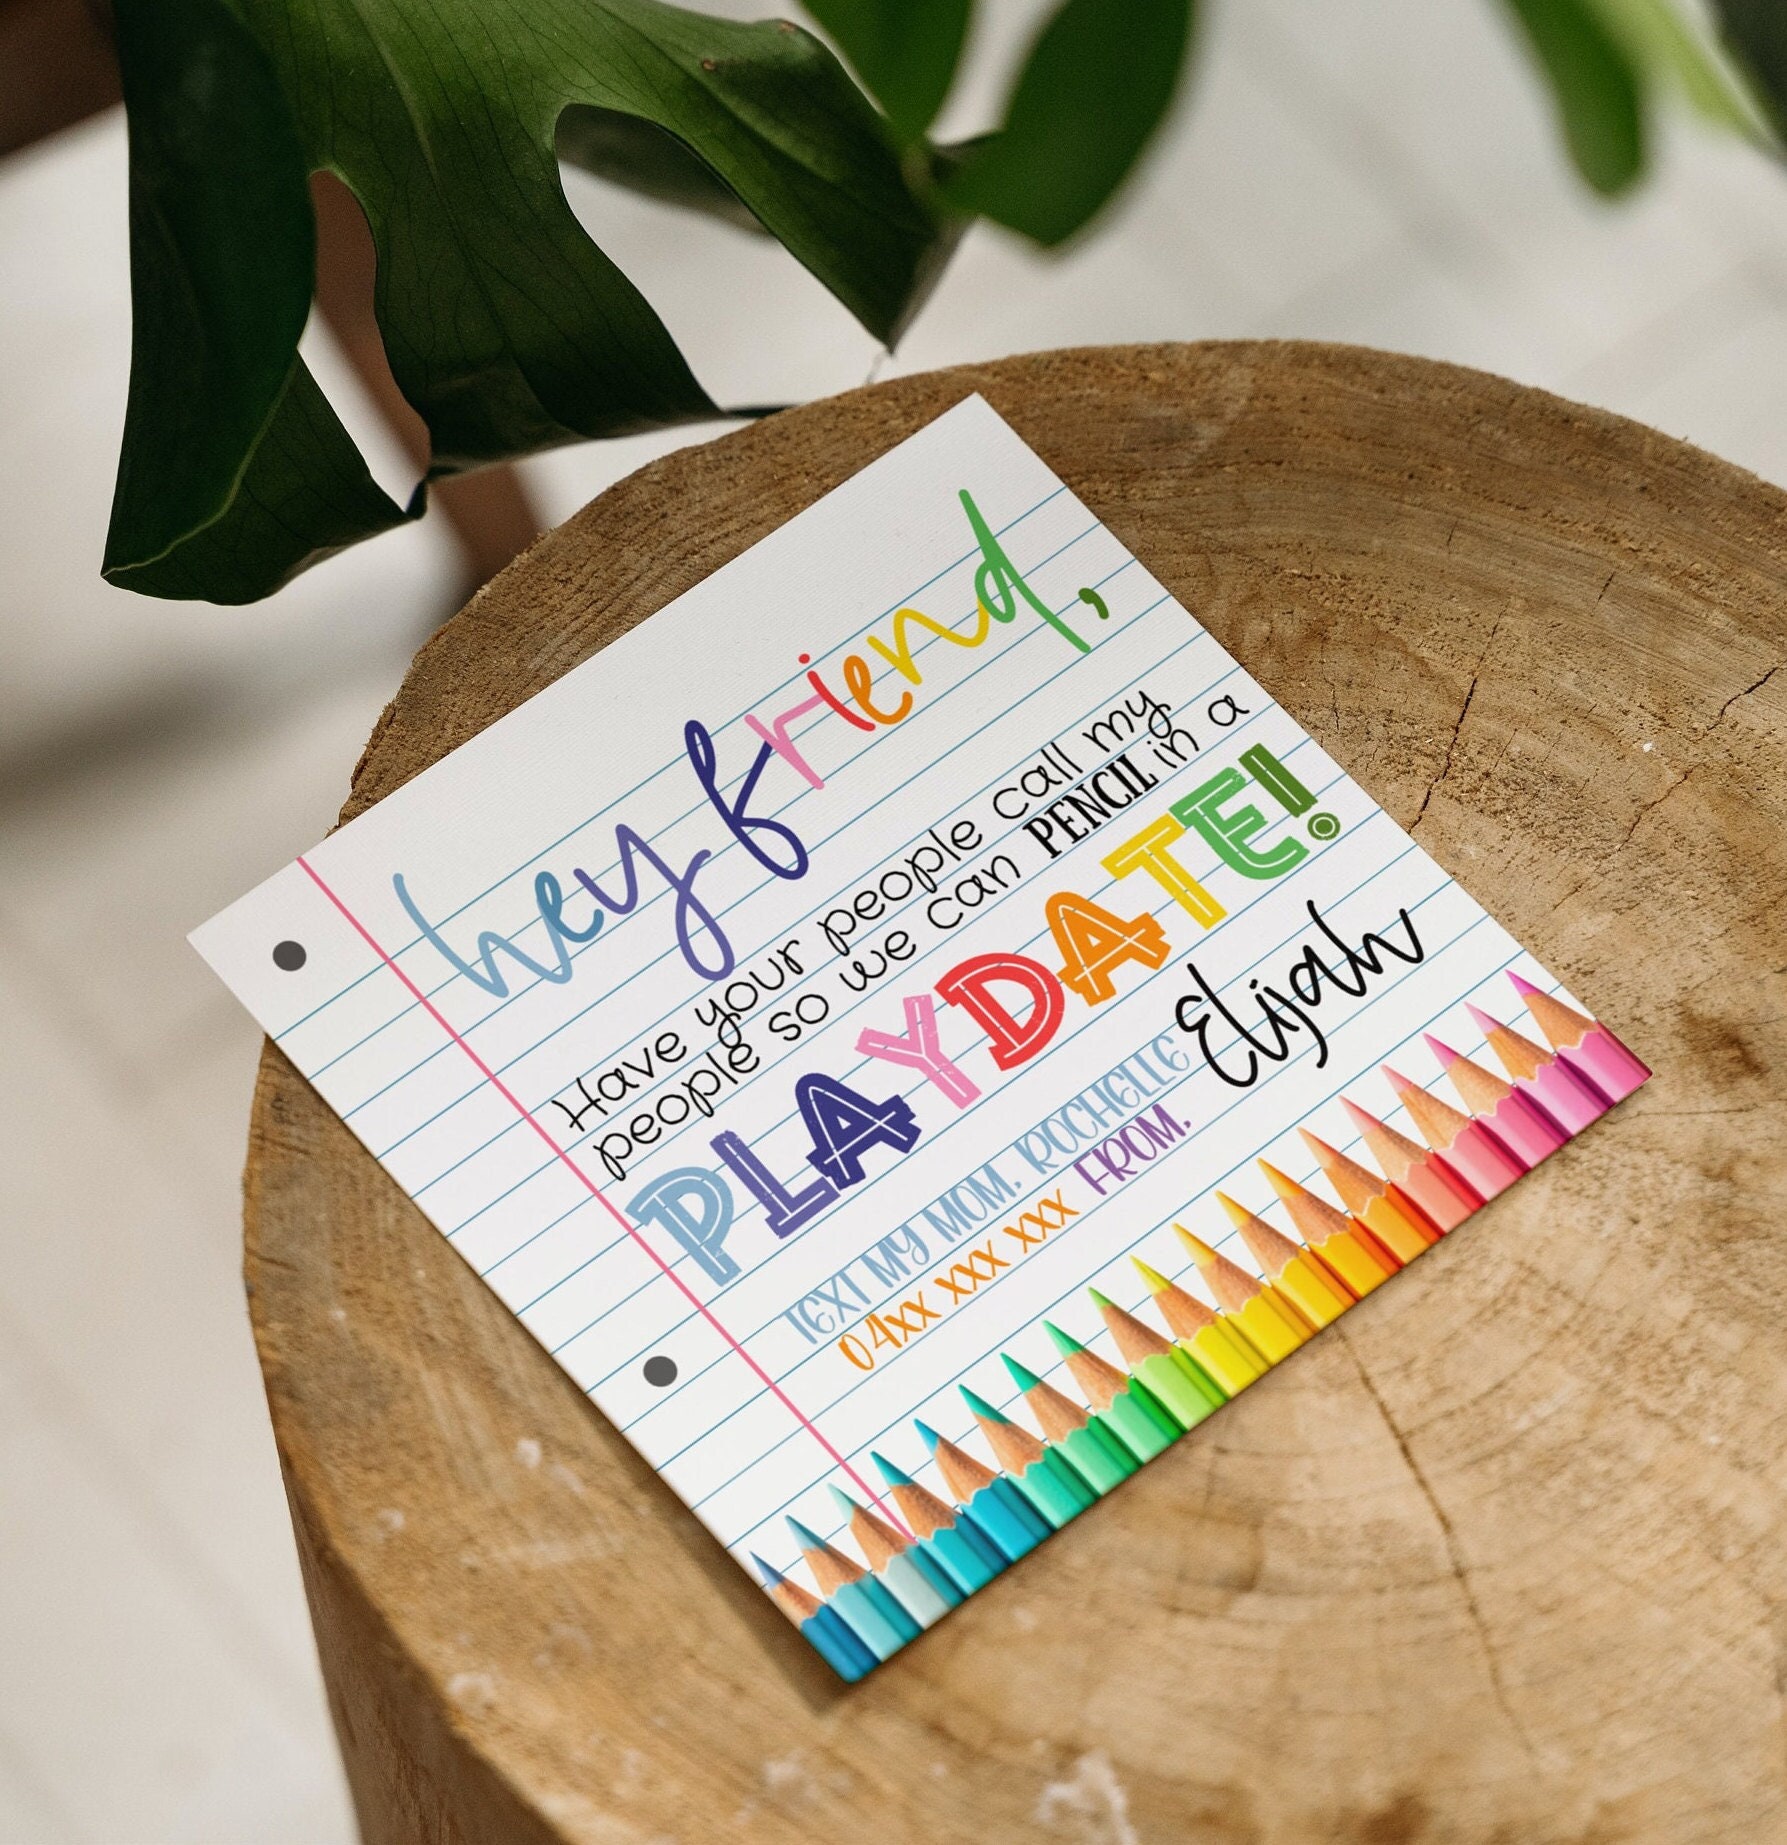 hey friend,
Have your people call my
people so we can PENCIL in a
PLAYDATE!
TEXT MY MOM, ROCHELLE
04xx xxx xxx FROM,
Elijah